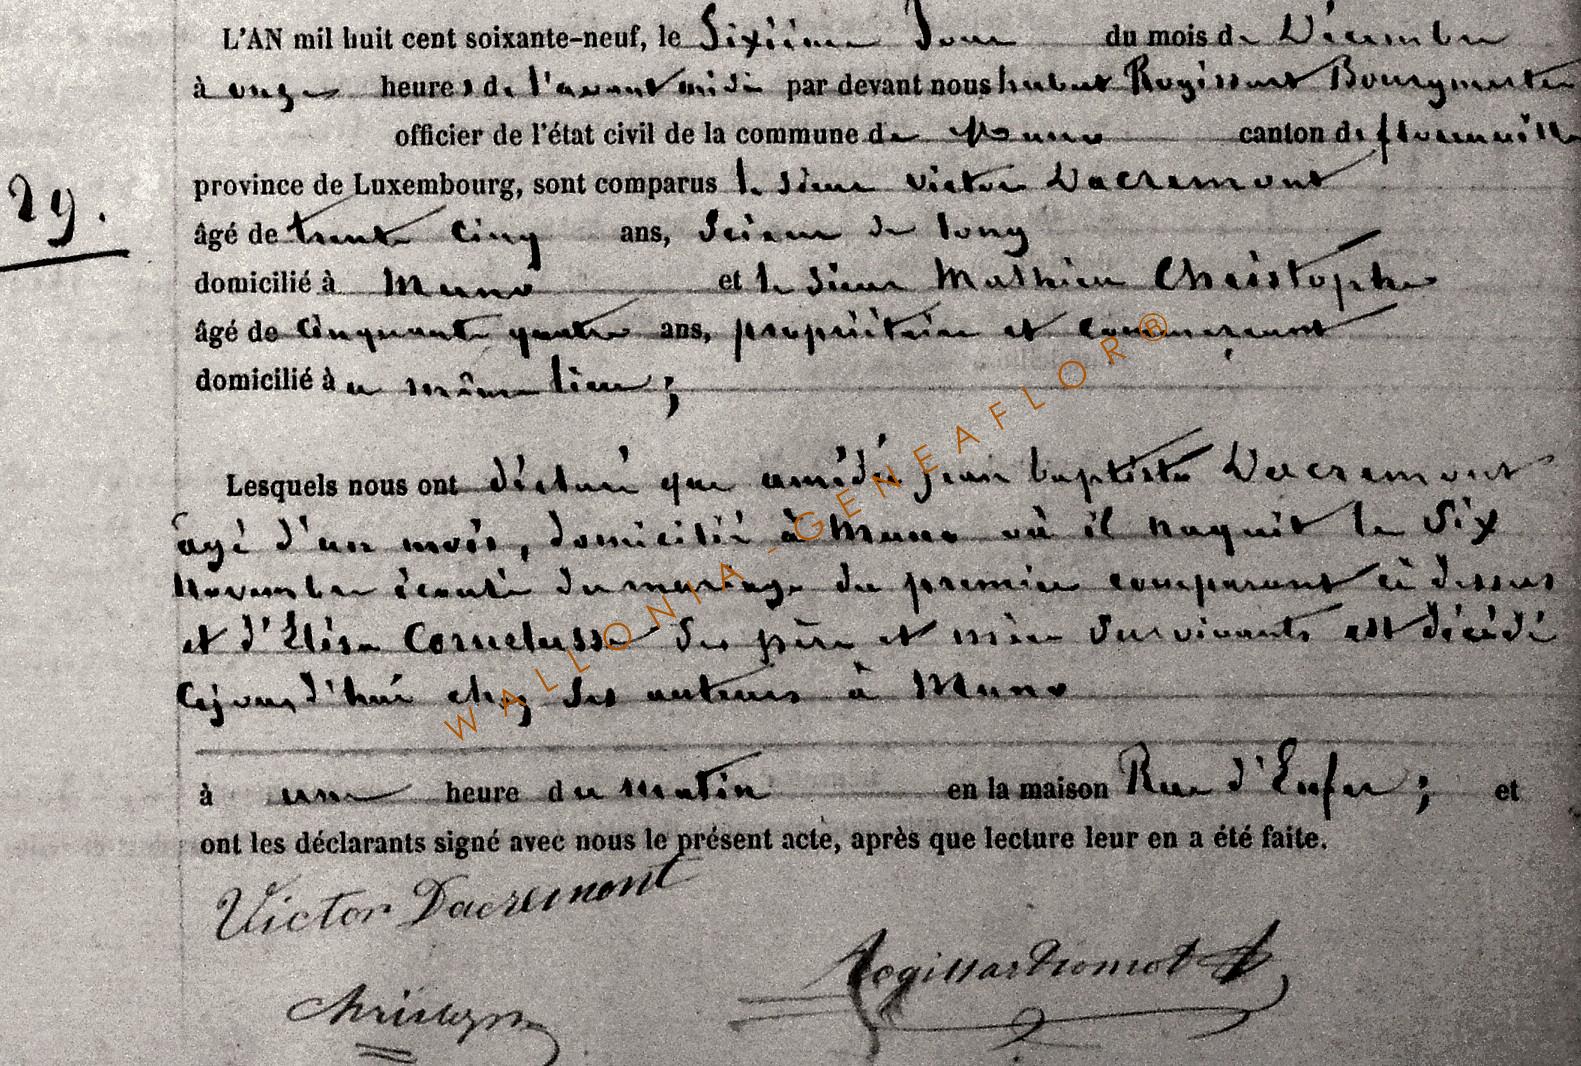 L'AN mil huit cent soixante-neuf, le Sixième Jour du mois de Décembre
à onze heures de l'avant midi par devant nous hubert Rogissart Bourgmestre
officier de l'état civil de la commune de Muno canton de florenville
province de Luxembourg, sont comparus le sieur Victor Dacremont
29.
âgé de trente Cinq ans, Scieur de long
domicilié à Muno et le sieur Mathieu Christophe
âgé de Cinquante quatre ans, propriétaire et commerçant
domicilié à même lieu ;
Lesquels nous ont déclaré que amédée jean baptiste Dacremont
agé d'un mois, domicilié à Muno où il naquit le Six
Novembre écoulé du mariage du premier comparant ci dessus
et d'Elise Cornelusse Ses père et mère Survivants est décédé
Cejourd'hui chez Ses auteurs à Muno
à une heure du Matin en la maison Rue d'Enfer ; et
ont les déclarants signé avec nous le présent acte, après que lecture leur en a été faite.
Victor Dacremont
WALLONIA-GENEAFLOR®